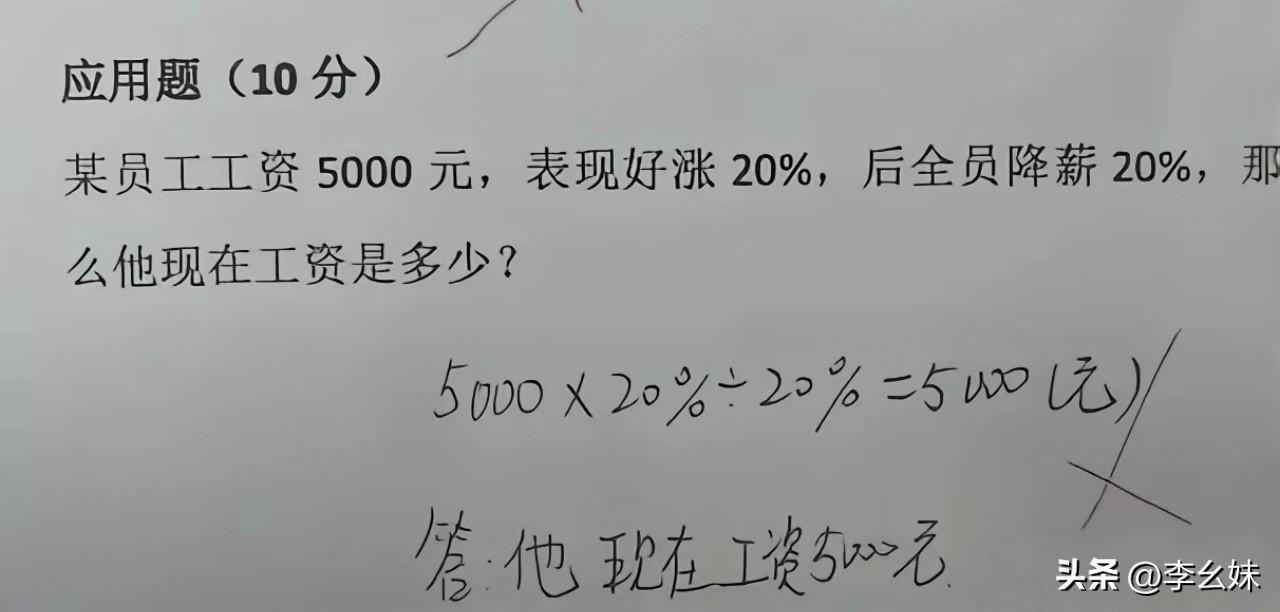 应用题（10 分）
某员工工资 5000 元，表现好涨 20%，后全员降薪 20%，那
么他现在工资是多少？
5000×20%÷20%=5000(元)
答:他现在工资5000元.
头条 @李幺妹